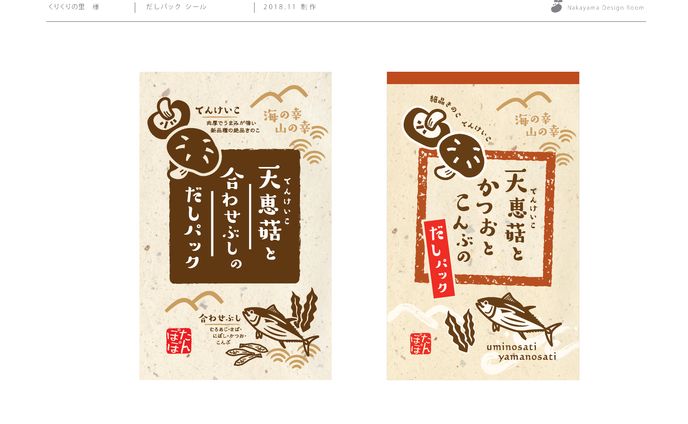 くりくりの里 様
だしパック シール
2018.11 制作
Nakayama Design Room
てんけいこ
肉厚でうまみが強い
新品種の絶品きのこ
海の幸
山の幸
天恵菇と
てんけいこ
合わせぶしの
だしパック
合わせぶし
むろあじ・さば・
にぼし・かつお・
こんぶ
たん
ぽぽ
絶品きのこ てんけいこ
海の幸
山の幸
天恵菇と
てんけいこ
かつおと
こんぶの
だしパック
たん
ぽぽ
uminosati
yamanosati